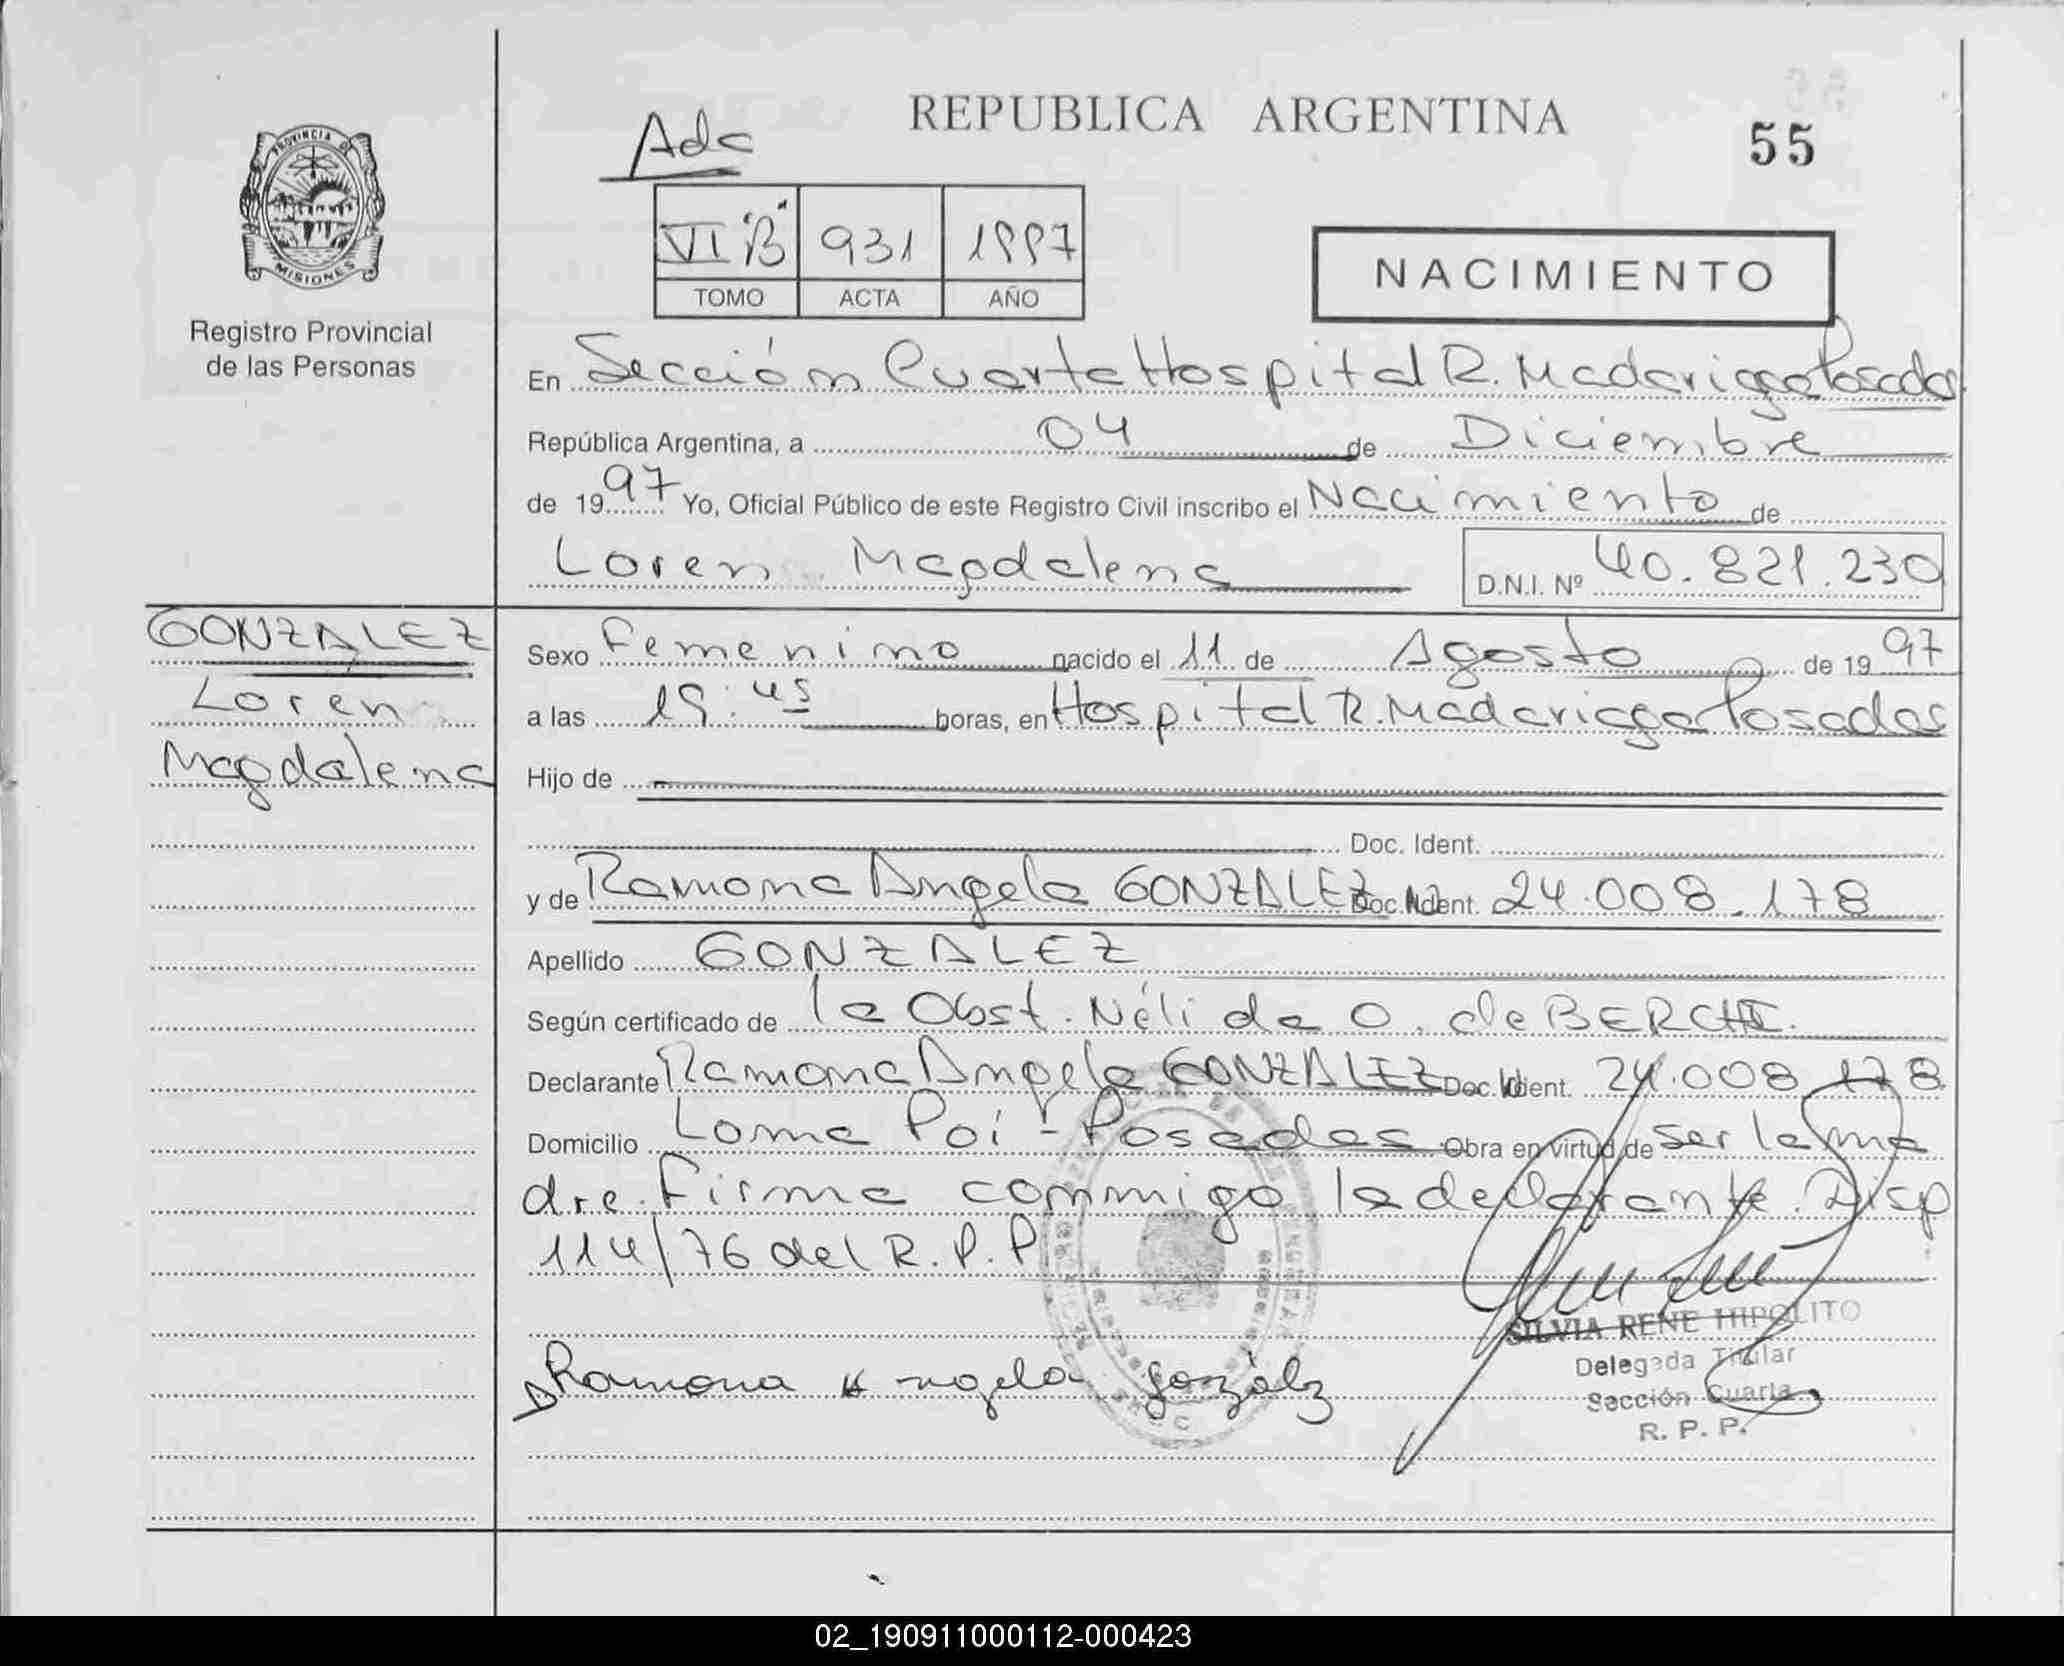 REPUBLICA ARGENTINA
55
Adc
VI "B" 931 1997
TOMO ACTA AÑO
NACIMIENTO
PROVINCIA DE
MISIONES
Registro Provincial
de las Personas
En Sección Cuarta Hospital R. Madariaga Posadas
República Argentina, a 04 de Diciembre
de 1997 Yo, Oficial Público de este Registro Civil inscribo el Nacimiento de
Loren Magdalena D.N.I. Nº 40.821.230
GONZALEZ
Loren
Magdalena
Sexo Femenino nacido el 11 de Agosto de 1997
a las 19:45 horas, en Hospital R. Madariaga Posadas
Hijo de
Doc. Ident.
y de Ramona Angela GONZALEZ Doc. Ident. 24.008.178
Apellido GONZALEZ
Según certificado de la Obst. Nélida O. de BERCHI.
Declarante Ramona Angela GONZALEZ Doc. Ident. 24.008.178
Domicilio Loma Poi - Posadas Obra en virtud de ser la ma
dre. Firma conmigo la declarante. Disp
114/76 del R.P.P
SILVIA RENE HIPOLITO
Delegada Titular
Sección Cuarta
R. P. P.
Ramona Angela gonzálz
02_190911000112-000423